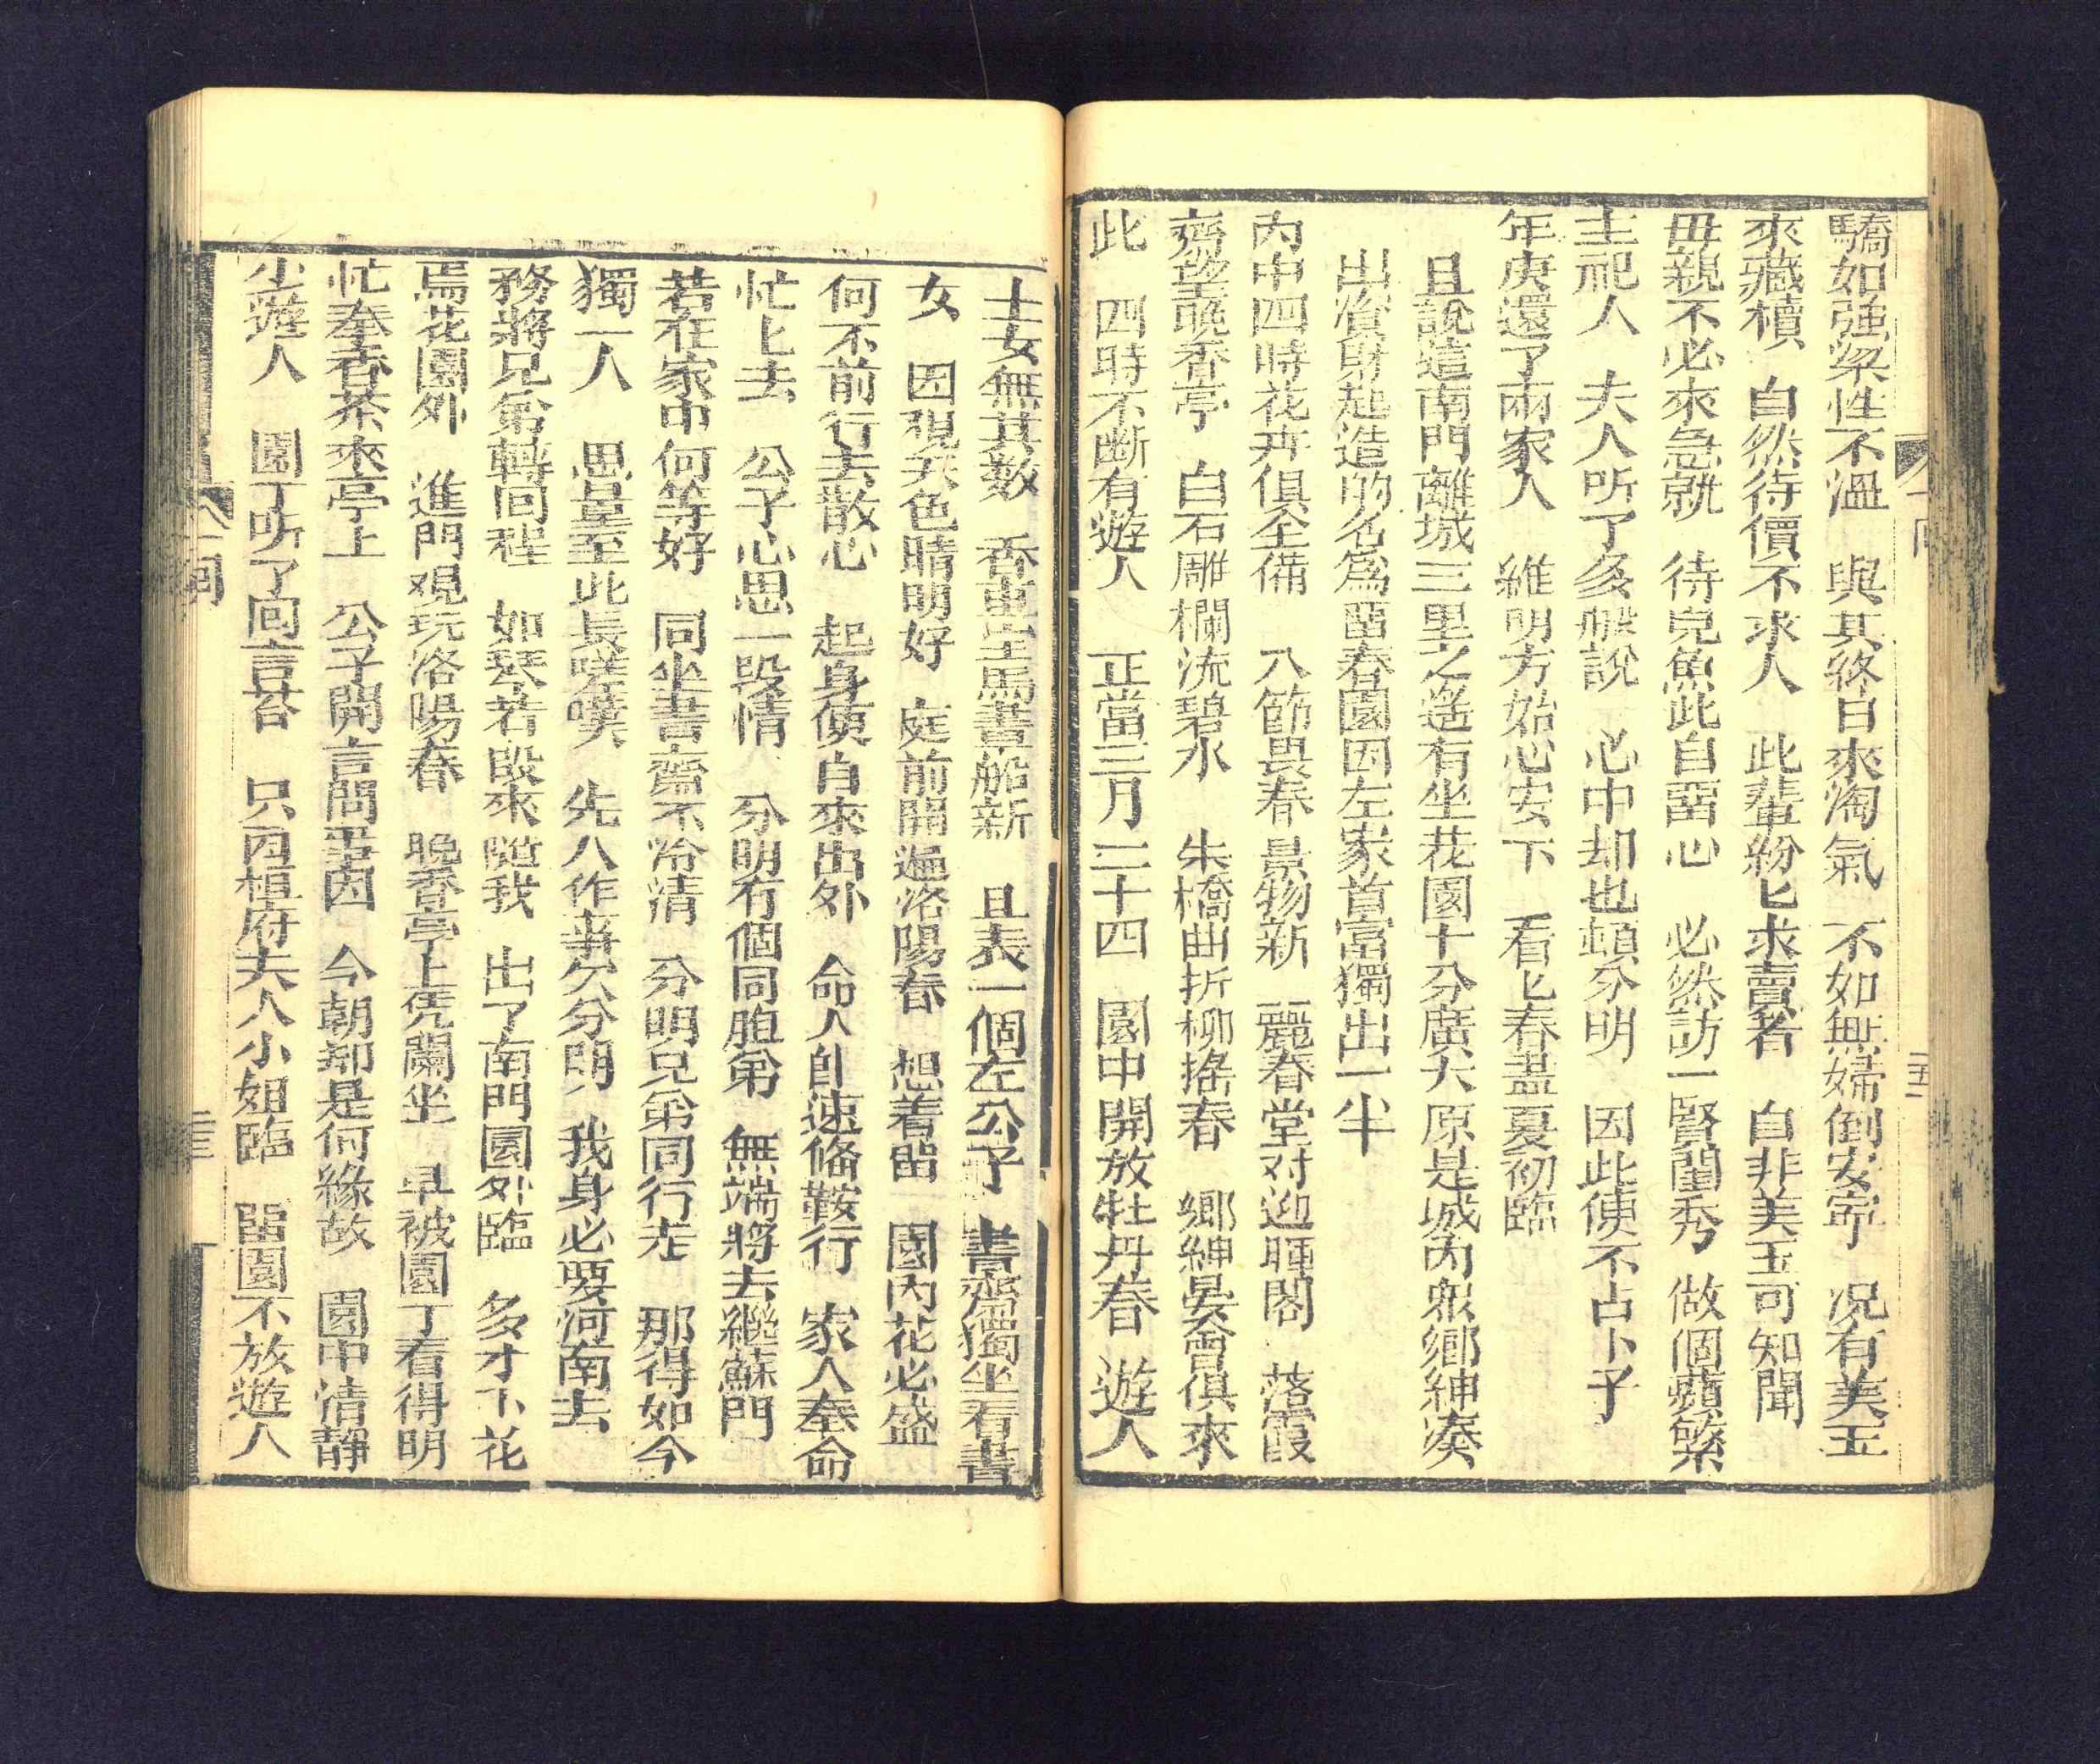 驕如强梁性不溫　與其終日來淘氣　不如無婦倒安寕　况有美玉
來藏櫝　自然待價不求人　此輩紛匕求賣者　自非美玉可知聞
毋親不必來急就　待兒魚此自畱心　必然訪一賢閨秀　做個蘋蘩
主祀人　夫人听了多般說　心中却也頓分明　因此使不占卜子
年庚還了兩家人　維明方始心安下　看匕春盡夏初臨
且說這南門離城三里之遙有坐花園十分廣大原是城内衆鄉紳湊
出資財起造的名爲畱春園因左家首富獨出一半
内中四時花卉俱全備　八節畏春景物新　麗春堂对迎暉閣　落霞
齋望晚香亭　白石雕欄流碧水　朱橋曲折柳搖春　鄉紳晏會俱來
此　四時不断有遊人　正當三月二十四　園中開放牡丹春　遊人
士女無其数　香車宝馬畫船新　且表一個左公子　書齋獨坐看書
女　因覌天色晴明好　庭前開遍洛陽春　想着畱　園内花必盛
何不前行去散心　起身便自來出外　命人自速俻鞍行　家人奉命
忙上去　公子心思一段情　分明有個同胞弟　無端將去繼蘇門
若在家中何等好　同坐書齋不冷清　分明兄弟同行走　那得如今
獨一人　思量至此長嗟嘆　先人作事欠分明　我身必要河南去
務將兄弟轉囘程　如琴若段來隨我　出了南門園外臨　多才下花
焉花園外　進門覌玩洛陽春　晚香亭上凭闌坐　早被園丁看得明
忙奉香茶來亭上　公子開言問事因　今朝却是何緣故　園中清靜
少遊人　園丁听了囘言荅　只因桓府夫人小姐臨　畱園不放遊人